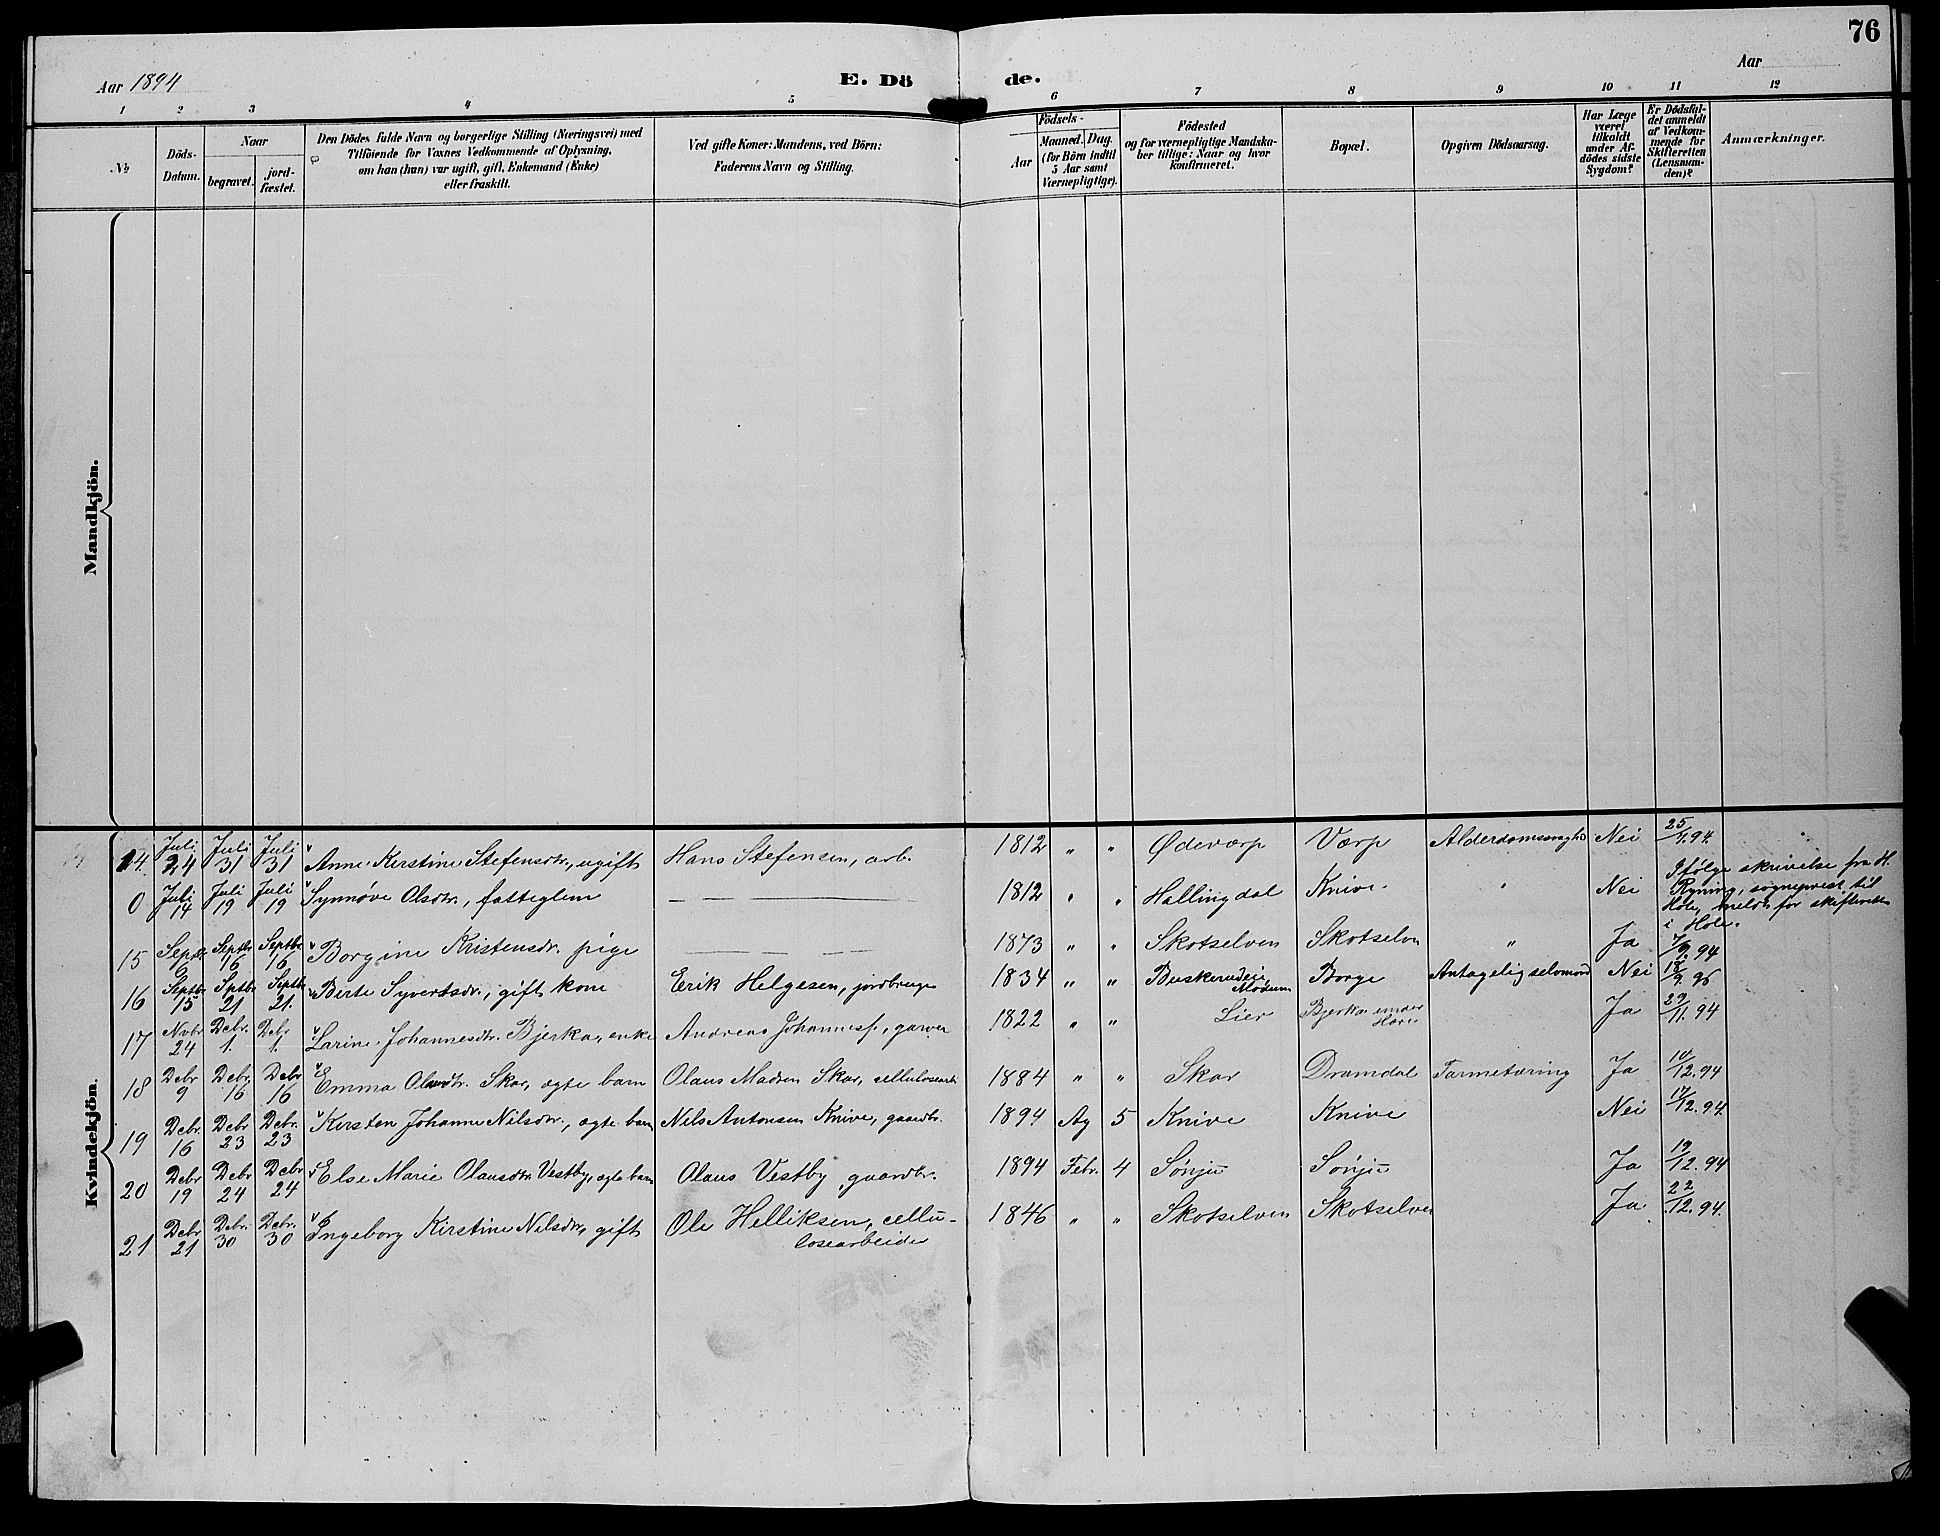 76
Aar 1894
E. Dö de.
Aar
1 2 3 4 5 6 7 8 9 10 11 12
No
Döds-Datum.
Naar
begravet.
jord-fæstet.
Den Dödes fulde Navn og borgerlige Stilling (Næringsvei) med
Tilföiende for Voxnes Vedkommende af Oplysning,
om han (hun) var ugift, gift, Enkemand (Enke)
eller fraskilt.
Ved gifte Koner: Mandens, ved Börn:
Faderens Navn og Stilling.
Födsels-
Aar
Maaned. Dag.
(for Börn indtil
5 Aar samt
Værnepligtige).
Födested
og for værnepligtige Mandska-
ber tillige: Naar og hvor
konfirmeret.
Bopæl.
Opgiven Dödsaarsag.
Har Læge
været
tilkaldt
under Af-
dödes sidste
Sygdom?
Er Dödsfal-
det anmeldt
af Vedkom-
mende for
Skifteretten
(Lensman-
den)?
Anmærkninger.
Mandkjön.
Kvindekjön.
14. Juli 24 Juli 31 Juli 31 Anne Kirstine Stefensdtr., ugift Hans Stefensen, arb. 1812 " " Ødevarp Værp Alderdomssvaghed Nei 25/7.94.
0 Juli 14 Juli 19 Juli 19 Synnøve Olsdtr., fattiglem — — — 1812 " " Hallingdal Knive " Nei Ifølge skrivelse fra H.
Ryning, sogneprest til
Hole, meldt for skifteretten
i Hole.
15 Septbr 6 Septbr 16 Septbr 16 Borgine Kristensdr. pige — — 1873 " " Skotselven Skotselvn " Ja 7/9.94
16 Septbr 15 Sptbr 21 Septbr 21. Birte Syvertsdr., gift kone Erik Helgesen, jordbruger 1834 " " Buskerudeie Modum Borge Antagelig selvmord Nei 18/9.96
17 Novbr 24 Debr. 1. Debr 1. Larine Johannesdtr. Bjerka, enke Andreas Johannesf., garver 1822 " " Lier Bjerka under Ja 29/11.94
18 Debr 9 Debr 16 Debr 16 Emma Olausdtr. Skar, ægte barn Olaus Madsen Skar, cellulosearb 1884 " " Skar Dramdal Tarmetæring Ja 10/12.94
19 Debr. 16 Debr. 23 Debr. 23 Kirsten Johanne Nilsdtr., ægte barn Nils Antonsen Knive, gaardbr. 1894 Ag 5 Knive Knive Nei 17/12.94.
20 Debr 19 Debr 24 Debr 24 Else Marie Olausdtr. Vestby, ægte barn Olaus Vestby, gaardbr. 1894 Febr. 4 Sønju Sønju Ja 19/12.94
21 Debr 21 Debr. 30 Debr. 30 Ingeborg Kirstine Nilsdtr, gift Ole Helliksen, cellu-
losearbeider 1846 " " Skotselven Skotselven Ja 22/12.94.